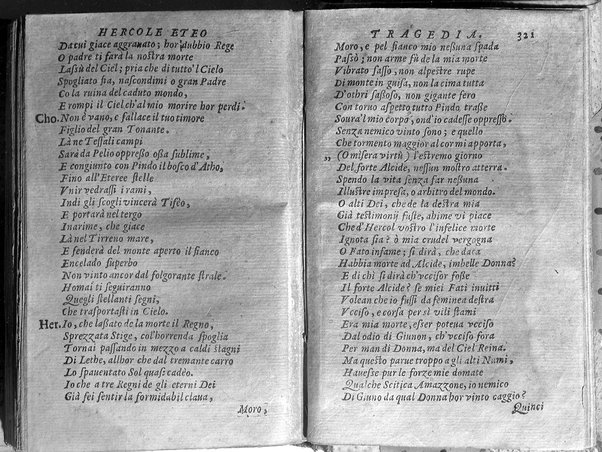 HERCOLE ETEO
Da cui giace aggravato; hor dubbio Rege
O padre ti farà la nostra morte
Lassù del Ciel; pria che di tutto'l Cielo
Spogliato sia, nascondimi o gran Padre
Co la ruina del caduto mondo,
E rompi il Ciel ch'al mio morire hor perdi.
Cho. Non è vano, e fallace il tuo timore
Figlio del gran Tonante.
Là ne Tessali campi
Sarà da Pelio oppresso ossa sublime,
E congiunto con Pindo il bosco d'Atho,
Fino all'Eteree stelle
Vnir vedrassi i rami,
Indi gli scogli vincerà Tifeo,
E porterà nel tergo
Inarime, che giace
Là nel Tirreno mare,
E fenderà del monte aperto il fianco
Encelado superbo
Non vinto ancor dal folgorante strale.
Homai ti seguiranno
Quegli stellanti segni,
Che trasportasti in Cielo.
Her. Io, che lassato de la morte il Regno,
Sprezzata Stige, col'horrenda spoglia
Tornai passando in mezzo a caldi stagni
Di Lethe, allhor che dal tremante carro
Lo spauentato Sol quasi cadèo.
Io che a tre Regni de gli eterni Dei
Già fei sentir la formidabil claua,
Moro,
TRAGEDIA. 321
Moro, e pel fianco mio nessuna spada
Passò; non arme fù de la mia morte
Vibrato sasso, non alpestre rupe
Di monte in guisa, non la cima tutta
D'othri sassoso, non gigante fero
Con toruo aspetto tutto Pindo trasse
Soura'l mio corpo, ond'io cadesse oppresso.
Senza nemico vinto sono; e quello
Che tormento maggior al cor mi apporta,
„ (O misera virtù) l'estremo giorno
Del forte Alcide, nessun mostro atterra.
Spendo la vita senza far nessuna
Illustre impresa, o arbitro del mondo.
O alti Dei, che de la destra mia
Già testimonij fuste, ahime vi piace
Che d'Hercol vostro l'infelice morte
Ignota sia? ò mia crudel vergogna
O Fato infame; si dirà, che data
Habbia morte ad Alcide, imbelle Donna?
E di chi si dirà ch'vccisor fosse
Il forte Alcide? se miei Fati inuitti
Volean che io fussi da feminea destra
Vcciso, e corsa per sì vili stami
Era mia morte, esser poteua vcciso
Dal odio di Giunon, ch'vcciso fora
Per man di Donna, ma del Ciel Reina.
Ma questo parue troppo a gli alti Numi,
Hauesse pur le forze mie domate
Qualche Scitica Amazzone, io nemico
Di Giuno da qual Donna hor vinto caggio?
Quinci